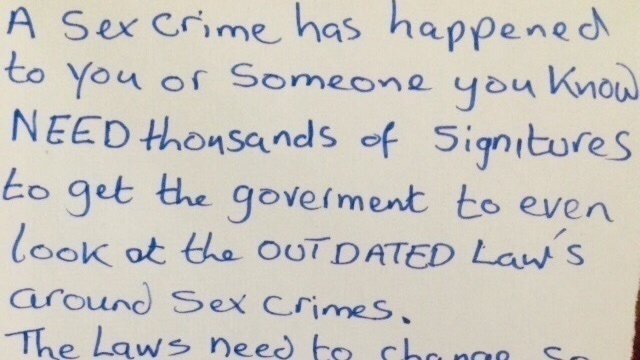 A Sex Crime has happened
to you or Someone you Know
NEED thousands of Signitures
to get the goverment to even
look at the OUTDATED Law's
around Sex Crimes.
The Laws need to change so